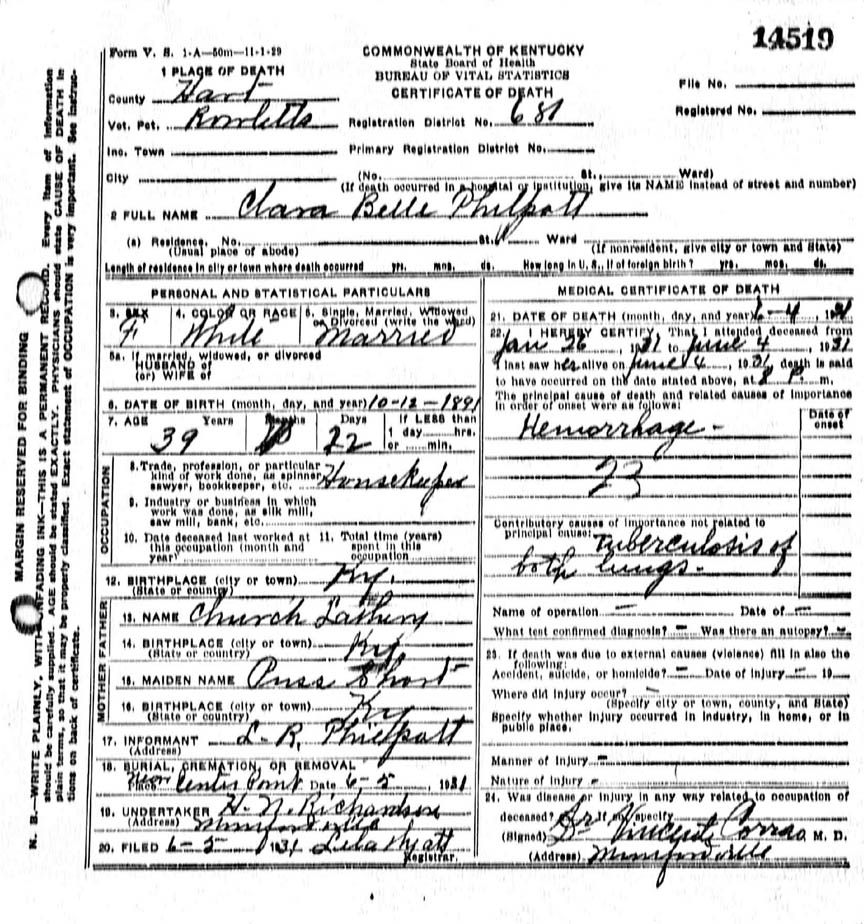 14519
Form V. S. 1-A—50m—11-1-29
COMMONWEALTH OF KENTUCKY
State Board of Health
BUREAU OF VITAL STATISTICS
CERTIFICATE OF DEATH
File No.
Registered No.
1 PLACE OF DEATH
County Hart
Vot. Pct. Rowletts
Registration District No. 681
Inc. Town
Primary Registration District No.
City (No. St., Ward)
(If death occurred in a hospital or institution, give its NAME instead of street and number)
2 FULL NAME Clara Belle Philpott
(a) Residence. No. St. Ward
(Usual place of abode) (If nonresident, give city or town and State)
Length of residence in city or town where death occurred yrs. mos. ds. How long in U. S., if of foreign birth? yrs. mos. ds.
PERSONAL AND STATISTICAL PARTICULARS
3. SEX F
4. COLOR OR RACE White
5. Single, Married, Widowed or Divorced (write the word) Married
5a. If married, widowed, or divorced
HUSBAND of
(or) WIFE of
6. DATE OF BIRTH (month, day, and year) 10-12-1891
7. AGE Years Months Days If LESS than
1 day hrs.
or min.
39 22
OCCUPATION
8. Trade, profession, or particular
kind of work done, as spinner
sawyer, bookkeeper, etc. Housekeeper
9. Industry or business in which
work was done, as silk mill,
saw mill, bank, etc.
10. Date deceased last worked at
this occupation (month and
year)
11. Total time (years)
spent in this
occupation
12. BIRTHPLACE (city or town) Ky.
(State or country)
FATHER
13. NAME Church
14. BIRTHPLACE (city or town) Ky
(State or country)
MOTHER
15. MAIDEN NAME Puss
16. BIRTHPLACE (city or town) Ky
(State or country)
17. INFORMANT L. R. Philpott
(Address)
18. BURIAL, CREMATION, OR REMOVAL
Place Near Center Point Date 6-5, 1931
19. UNDERTAKER H. N. Richardson
(Address) Munfordville
20. FILED 6-5 1931 Lela Wyatt
Registrar.
MEDICAL CERTIFICATE OF DEATH
21. DATE OF DEATH (month, day, and year) 6-4, 1931
22. I HEREBY CERTIFY, That I attended deceased from
Jan 26, 1931 to June 4, 1931
I last saw her alive on June 4, 1931 death is said
to have occurred on the date stated above, at 8 P. m.
The principal cause of death and related causes of importance
in order of onset were as follows:
Date of
onset
Hemorrhage -
23
Contributory causes of importance not related to
principal cause: Tuberculosis of
both lungs-
Name of operation — Date of —
What test confirmed diagnosis? — Was there an autopsy? —
23. If death was due to external causes (violence) fill in also the
following:
Accident, suicide, or homicide? — Date of injury — 19
Where did injury occur? —
(Specify city or town, county, and State)
Specify whether injury occurred in industry, in home, or in
public place.
Manner of injury —
Nature of injury —
24. Was disease or injury in any way related to occupation of
deceased? If so, specify
(Signed) Dr Vincent Corrao, M. D.
(Address) Munfordville
MARGIN RESERVED FOR BINDING
N. B.—WRITE PLAINLY, WITH UNFADING INK—THIS IS A PERMANENT RECORD. Every item of information
should be carefully supplied. AGE should be stated EXACTLY. PHYSICIANS should state CAUSE OF DEATH in
plain terms, so that it may be properly classified. Exact statement of OCCUPATION is very important. See instruc-
tions on back of certificate.